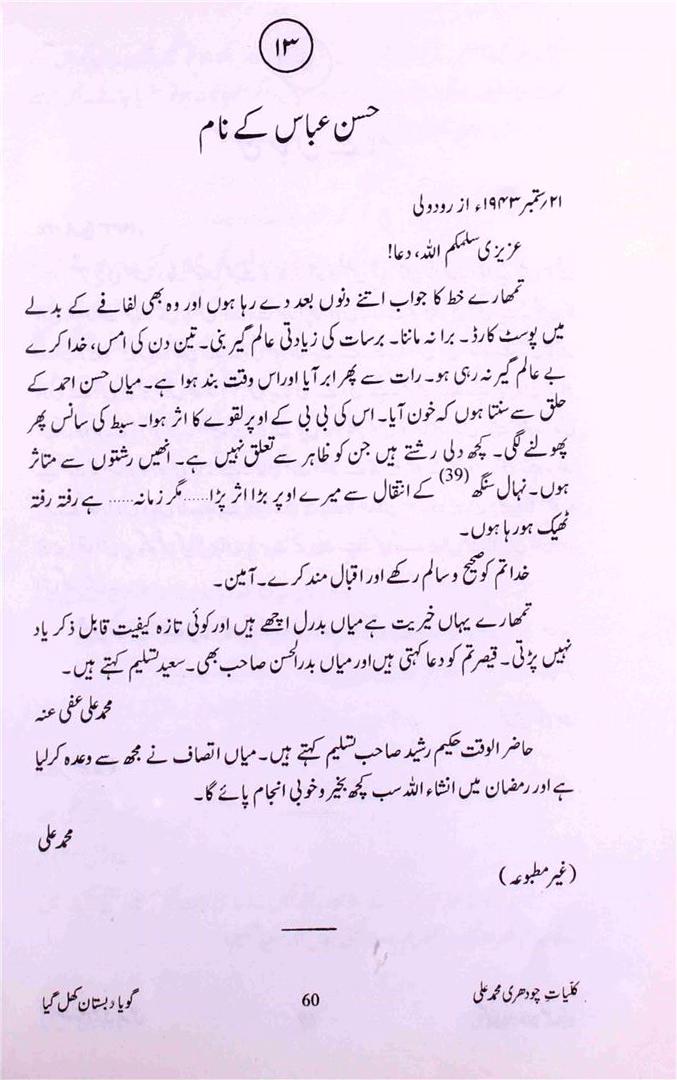 ۱۳
حسن عباس کے نام
۲۱؍ستمبر ۱۹۴۳ء از رودولی
عزیزی سلمکم اللہ، دعا!
تمھارے خط کا جواب اتنے دنوں بعد دے رہا ہوں اور وہ بھی لفافے کے بدلے
میں پوسٹ کارڈ۔ برا نہ ماننا۔ برسات کی زیادتی عالم گیر بنی۔ تین دن کی امس، خدا کرے
بے عالم گیر نہ رہی ہو۔ رات سے پھر ابر آیا اور اس وقت بند ہوا ہے۔ میاں حسن احمد کے
حلق سے سنتا ہوں کہ خون آیا۔ اس کی بی بی کے اوپر لقوے کا اثر ہوا۔ سبط کی سانس پھر
پھولنے لگی۔ کچھ دلی رشتے ہیں جن کو ظاہر سے تعلق نہیں ہے۔ انھیں رشتوں سے متاثر
ہوں۔ نہال سنگھ (39) کے انتقال سے میرے اوپر بڑا اثر پڑا...... مگر زمانہ...... ہے رفتہ رفتہ
ٹھیک ہو رہا ہوں۔
خدا تم کو صحیح و سالم رکھے اور اقبال مند کرے۔ آمین۔
تمھارے یہاں خیریت ہے میاں بدرل اچھے ہیں اور کوئی تازہ کیفیت قابل ذکر یاد
نہیں پڑتی۔ قیصر تم کو دعا کہتی ہیں اور میاں بدرالحسن صاحب بھی۔ سعید تسلیم کہتے ہیں۔
محمد علی عفی عنہ
حاضر الوقت حکیم رشید صاحب تسلیم کہتے ہیں۔ میاں اتصاف نے مجھ سے وعدہ کر لیا
ہے اور رمضان میں انشاء اللہ سب کچھ بخیر و خوبی انجام پائے گا۔
محمد علی
(غیر مطبوعہ)
کلّیاتِ چودھری محمد علی 60 گویا دبستان کھل گیا